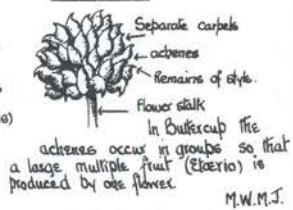 Separate carpels
achenes
Remains of style.
Flower stalk
In Buttercup the
achenes occur in groups so that
a large multiple fruit (Etaerio) is
produced by one flower.
M.W.M.J.